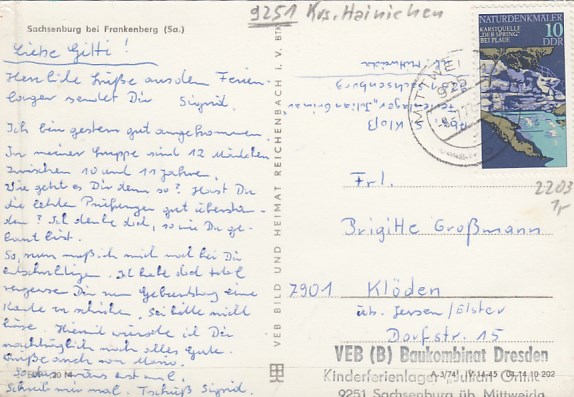 9251 Krs. Hainichen
Sachsenburg bei Frankenberg (Sa.)
Liebe Gitti!
Herzliche Grüße aus dem Ferien-
lager sendet Dir Sigrid.
Ich bin gestern gut angekommen.
In meiner Gruppe sind 12 Mädchen
zwischen 10 und 11 Jahren.
Wie geht es Dir denn so? Hast Du
die letzten Prüfungen gut überstan-
den? Ich denke doch, so wie Du ge-
baut bist.
So, nun muß ich mich noch bei Dir
entschuldigen. Ich habe doch total
vergessen Dir zum Geburtstag eine
Karte zu schicken. Sei bitte nicht
böse. Hiermit wünsche ich Dir
nachträglich noch alles Gute.
Grüße auch von Mario.
So das wär's erst mal.
Schreib mir mal. Tschüß Sigrid.
20 14
VEB BILD UND HEIMAT REICHENBACH I. V.
NATURDENKMALER
KARSTQUELLE
"DER SPRING"
BEI PLAUE
10
DDR
MITTWEIDA
Abs.:
S. Kloß
Ferienlager "Julian Grimau"
9251 Sachsenburg
üb. Mittweida
2203
1r
Frl.
Brigitte Großmann
7901 Klöden
üb. Jessen/Elster
Dorfstr. 15
VEB (B) Baukombinat Dresden
Kinderferienlager "Julian Grim
9251 Sachsenburg üb. Mittweida
A 3/74 IV-14-45 04 14 10 202